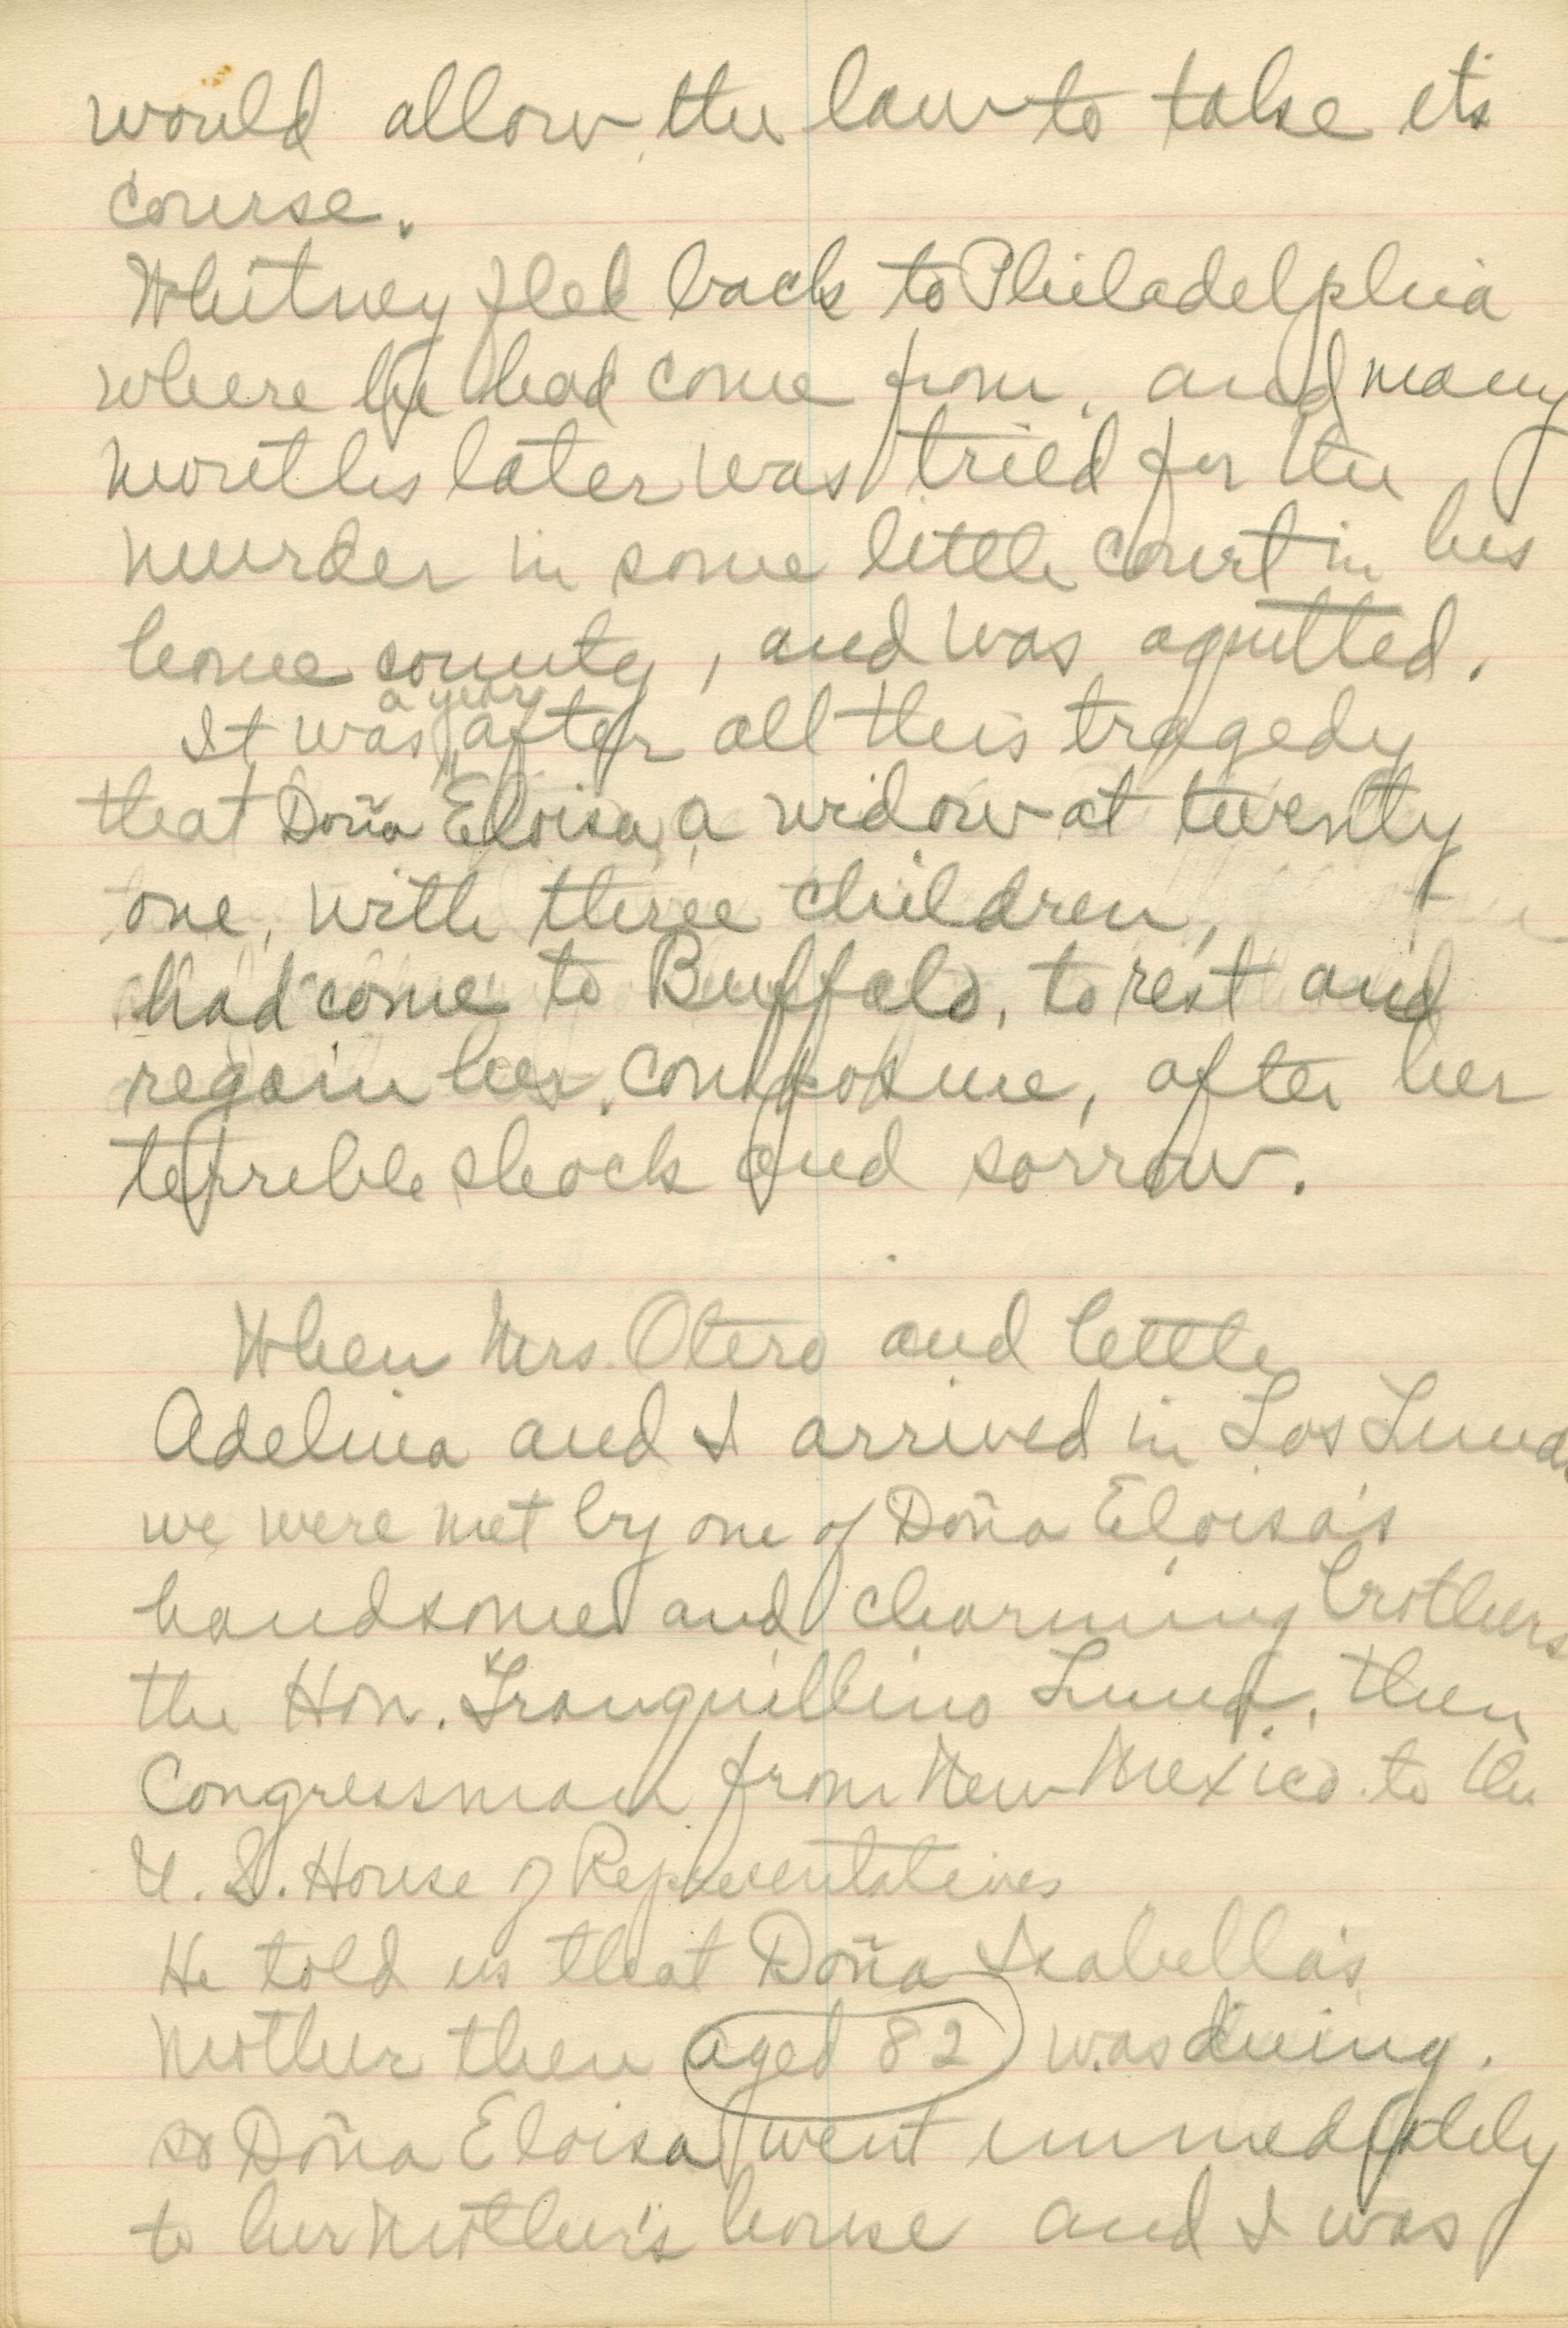 would allow the law to take it's
course.
Whitney fled back to Philadelphia
where he had come from, and many
months later was tried for the
murder in some little court in his
home county, and was aquitted.
a year
It was after all this tragedy
that Doña Eloisa, a widow at twenty
one, with three children,
had come to Buffalo, to rest and
regain her composure, after her
terrible shock and sorrow.
When Mrs. Otero and little
Adelina and I arrived in Los Lunas
we were met by one of Doña Eloisa's
handsome and charming brothers
the Hon. Tranquillino Luna, then
Congressman from New Mexico to the
U. S. House of Representatives
He told us that Doña Isabella's
mother then aged 82 was dying.
so Doña Eloisa went immediately
to her mother's house and I was